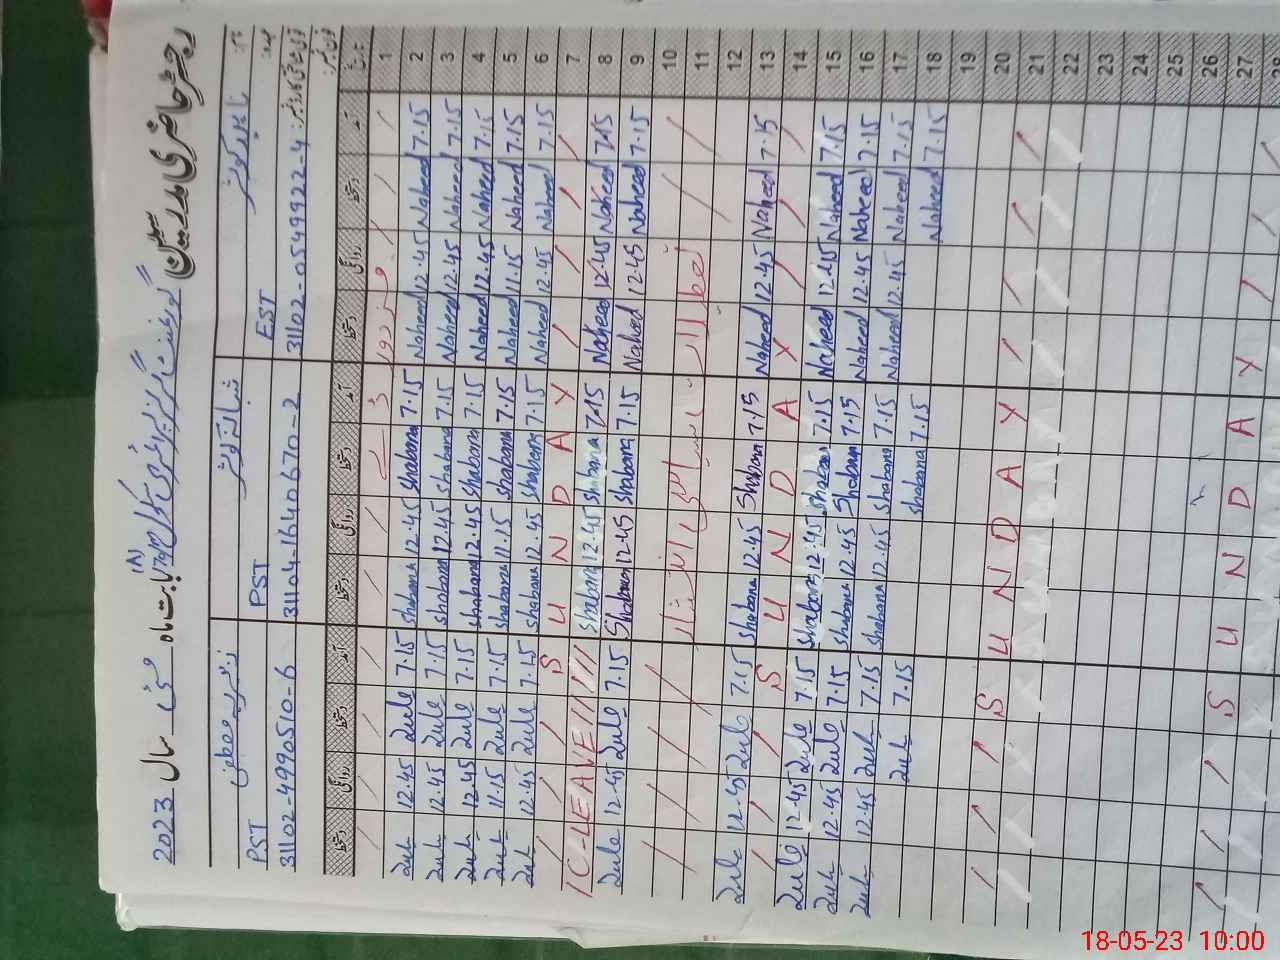 رجسٹر حاضری مدرسین گورنمنٹ گرلز پرائمری سکول (A) بابت ماہ مئی سال 2023
نام: ناہید کوثر شبانہ کوثر
عہدہ: EST PST PST
قومی شناختی کارڈ نمبر: 31102-0549922-4 31104-1640670-2 31102-4990510-6
تاریخ آمد دستخط روانگی دستخط آمد دستخط روانگی دستخط آمد دستخط روانگی دستخط
1
Zule 12.45 Zule 7.15 Shabana 12.45 Shabana 7.15 Naheed 12.45 Naheed 7.15 2
Zule 12.45 Zule 7.15 Shabana 12.45 Shabana 7.15 Naheed 12.45 Naheed 7.15 3
Zule 12.45 Zule 7.15 Shabana 12.45 Shabana 7.15 Naheed 12.45 Naheed 7.15 4
Zule 11.15 Zule 7.15 Shabana 11.15 Shabana 7.15 Naheed 11.15 Naheed 7.15 5
Zule 12.45 Zule 7.15 Shabana 12.45 Shabana 7.15 Naheed 12.45 Naheed 7.15 6
S U N D A Y 7
C-LEAVE Shabana 12.45 Shabana 7.15 Naheed 12.45 Naheed 7.15 8
Zule 12.45 Zule 7.15 Shabana 12.45 Shabana 7.15 Naheed 12.45 Naheed 7.15 9
10
تعطیلات سیاسی انتشار 11
12
Zule 12.45 Zule 7.15 Shabana 12.45 Shabana 7.15 Naheed 12.45 Naheed 7.15 13
S U N D A Y 14
Zule 12.45 Zule 7.15 Shabana 12.45 Shabana 7.15 Naheed 12.45 Naheed 7.15 15
Zule 12.45 Zule 7.15 Shabana 12.45 Shabana 7.15 Naheed 12.45 Naheed 7.15 16
Zule 12.45 Zule 7.15 Shabana 12.45 Shabana 7.15 Naheed 12.45 Naheed 7.15 17
Zule 7.15 Shabana 7.15 Naheed 7.15 18
19
20
S U N D A Y 21
22
23
24
25
26
27
S U N D A Y 28
18-05-23 10:00